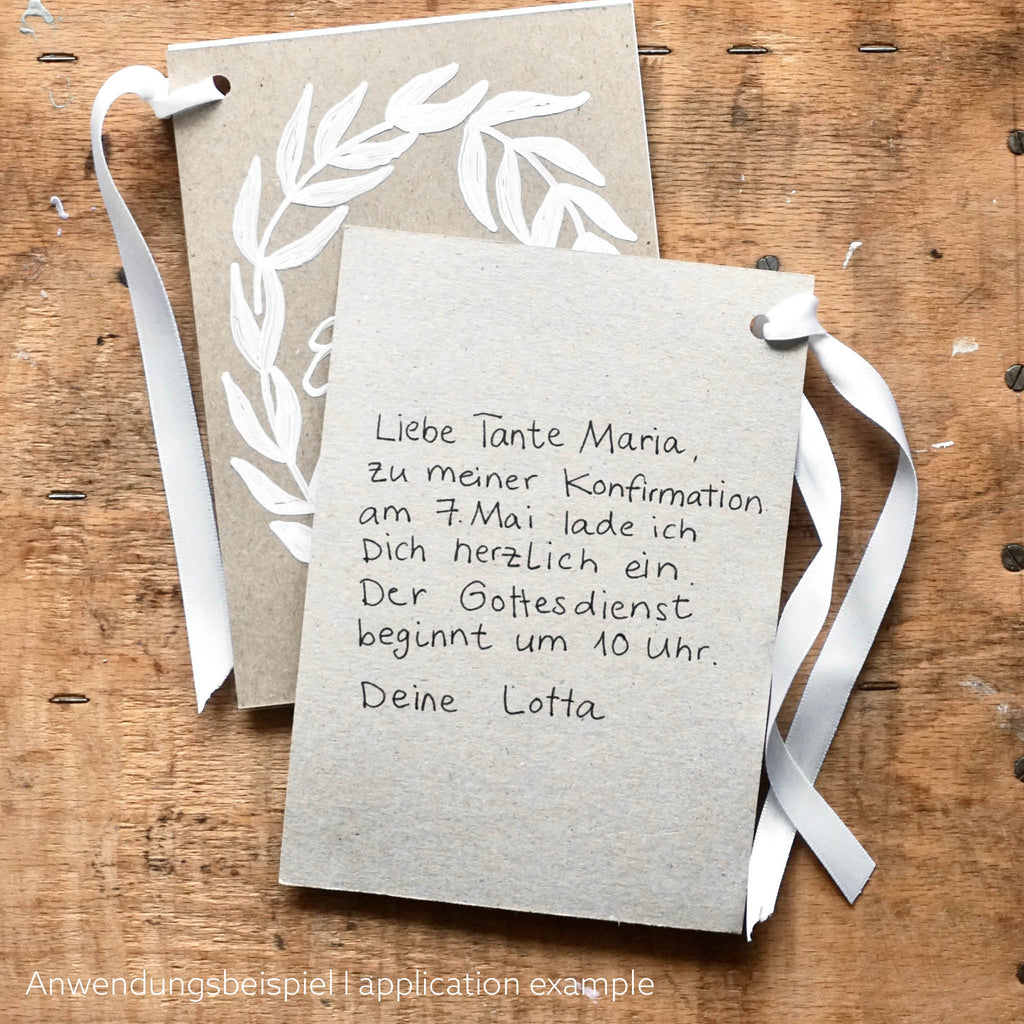 Liebe Tante Maria,
zu meiner Konfirmation
am 7. Mai lade ich
Dich herzlich ein.
Der Gottesdienst
beginnt um 10 Uhr.
Deine Lotta
Anwendungsbeispiel | application example